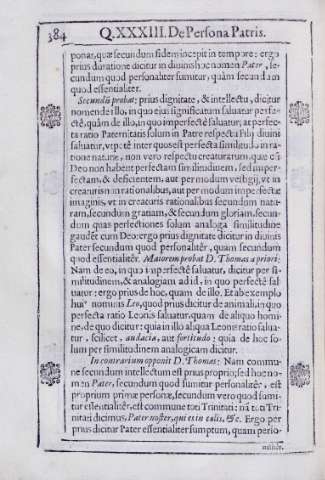 384 Q.XXXIII. De Persona Patris.
ponas, quæ secundum fidem incepit in tempore: ergo
prius duratione dicitur in diuinis hoc nomen Pater, se-
cundum quod personaliter sumitur, quàm secundum
quod essentialiter.
Secundū probat; prius dignitate, & intellectu, dicitur
nomen de illo, in quo eius significatum saluatur perfe-
ctè, quàm de illo, in quo imperfectè saluatur; at perfec-
ta ratio Paternitatis solum in Patre respectu Filij diuini
saluatur, vtpotè inter quos est perfecta similitudo in ra-
tione naturæ, non vero respectu creaturarum, quæ cū
Deo non habent perfectam similitudinem, sed imper-
fectam, & deficientem, aut per modum vestigij, vt in
creaturis irrationalibus, aut per modum imperfectæ
imaginis, vt in creaturis rationalibus secundum natu-
ram, secundum gratiam, & secundum gloriam, secun-
dum quas perfectiones solum analoga similitudine
gaudēt cum Deo: ergo prius dignitate dicitur in diuinis
Pater secundum quod personalitèr, quàm secundum
quod essentialitèr. Maiorem probat D. Thomas à priori;
Nam de eo, in quo imperfectè saluatur, dicitur per si-
militudinem, & analogiam ad id, in quo perfectè sal-
uatur: ergo prius de hoc, quam de illo. Et ab exemplo
huiꝰ nominis Leo, quod prius dicitur de animali, in quo
perfecta ratio Leonis saluatur, quam de aliquo homi-
ne, de quo dicitur: quia in illo aliqua Leonis ratio salua-
tur, scilicet, audacia, aut fortitudo; quia de hoc so-
lum per similitudinem analogicam dicitur.
In contrarium opponit D. Thomas; Nam commu-
ne secundum intellectum est prius proprio; sed hoc no-
men Pater, secundum quod sumitur personalitèr, est
proprium primæ personæ, secundum vero quod sumi-
tur essentialitèr, est commune toti Trinitati: nā toti Tri-
nitati dicimus, Pater noster, qui es in cœlis, &c. Ergo per
prius dicitur Pater essentialiter sumptum, quam perso-